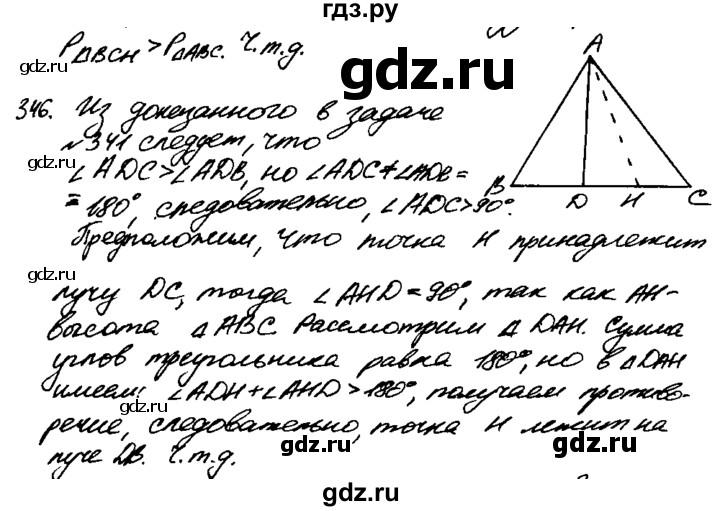 гдз.ру
P△BCH > P△ABC. Ч.т.д.
gdz.ru
gdz.ru
346. Из доказанного в задаче
№341 следует, что
∠ADC>∠ADB, но ∠ADC+∠ADB=
=180°, следовательно, ∠ADC>90°.
Предположим, что точка H принадлежит
A
B D H C
gdz.ru
gdz.ru
лучу DC, тогда ∠AHD=90°, так как AH-
высота △ABC. Рассмотрим △DAH. Сумма
углов треугольника равна 180°, но в △DAH
имеем: ∠ADH+∠AHD>180°, получаем противо-
gdz.ru
речие, следовательно, точка H лежит на
gdz.ru
луче DB. Ч.т.д.
gdz.ru
gdz.ru